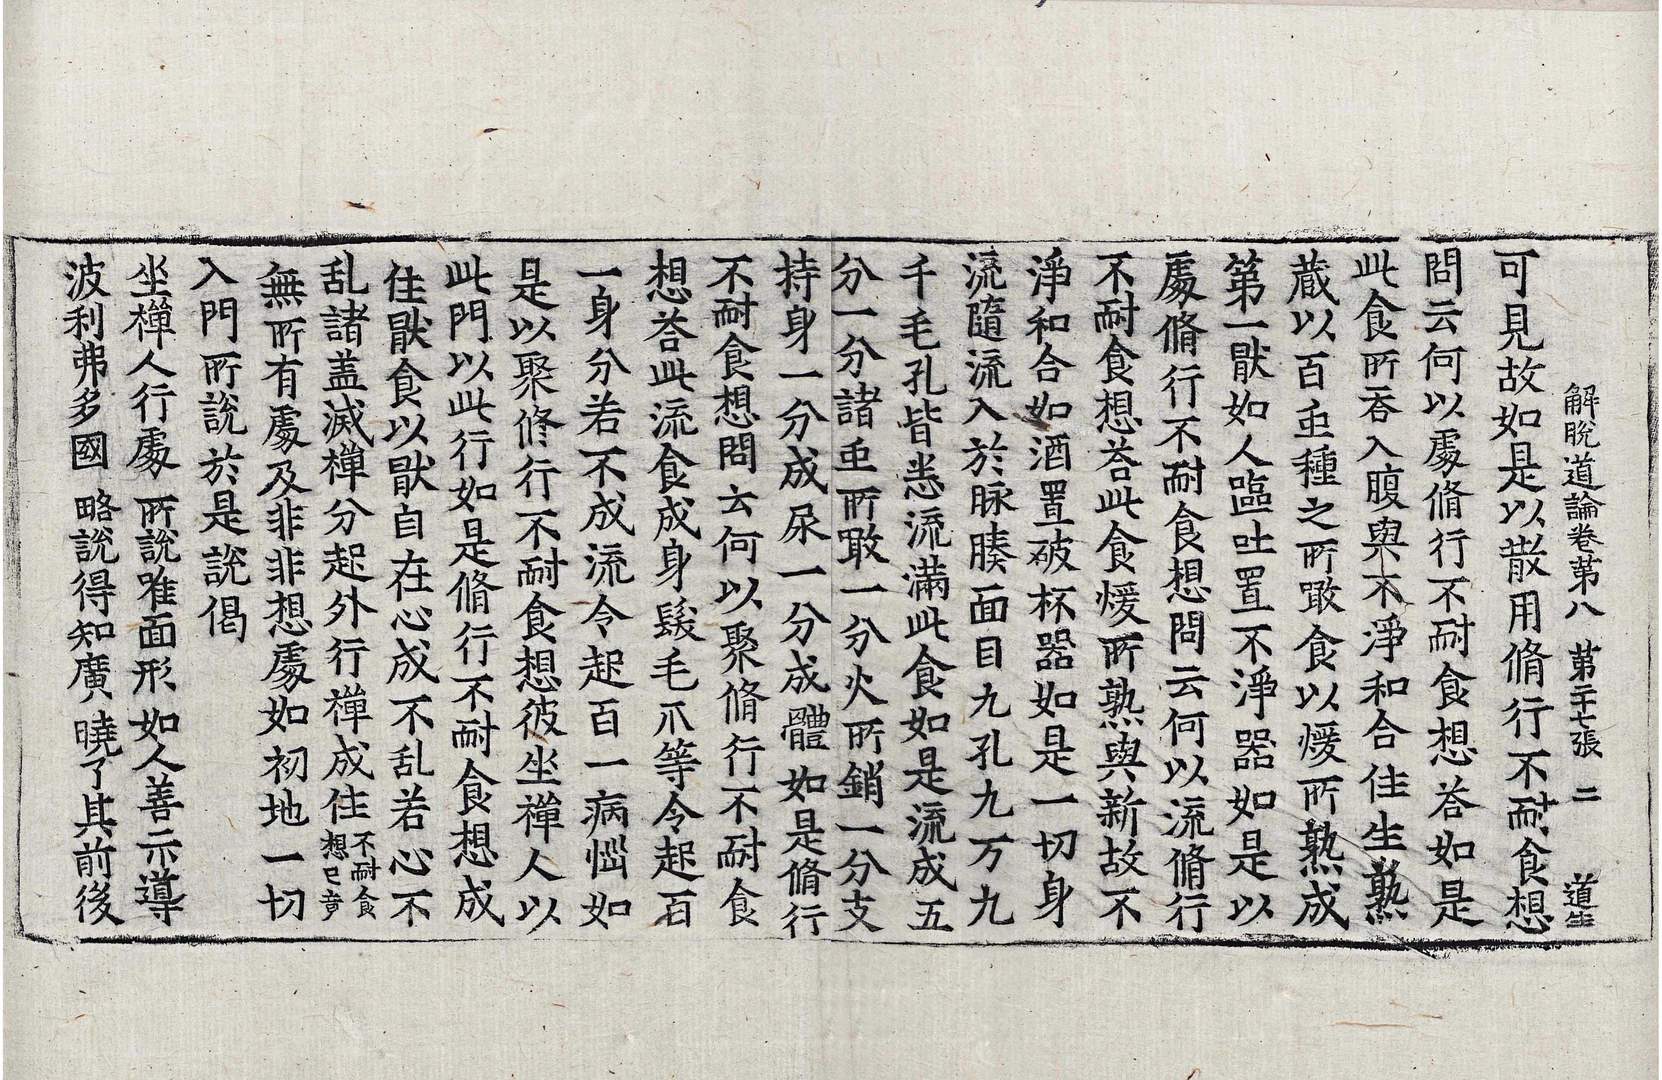 解脫道論卷第八　第二十七張　二　道生
可見故如是以散用脩行不耐食想
問云何以處脩行不耐食想荅如是
此食所吞入腹與不淨和合住生熟
蔵以百䖝種之所噉食以煖所熟成
第一猒如人嘔吐置不淨器如是以
處脩行不耐食想問云何以流脩行
不耐食想荅此食煖所熟與新故不
淨和合如酒置破杯器如是一切身
流隨流入於脉腠面目九孔九万九
千毛孔皆悉流滿此食如是流成五
分一分諸䖝所噉一分火所銷一分支
持身一分成尿一分成體如是脩行
不耐食想問云何以聚脩行不耐食
想荅此流食成身髮毛爪等令起百
一身分若不成流令起百一病惱如
是以聚修行不耐食想彼坐禪人以
此門以此行如是脩行不耐食想成
住猒食以猒自在心成不乱若心不
乱諸盖滅禪分起外行禪成住不耐食想已竟
無所有處及非非想處如初地一切
入門所說於是說偈
坐禪人行處　所說唯面形　如人善示導
波利弗多國　略說得知廣　曉了其前後